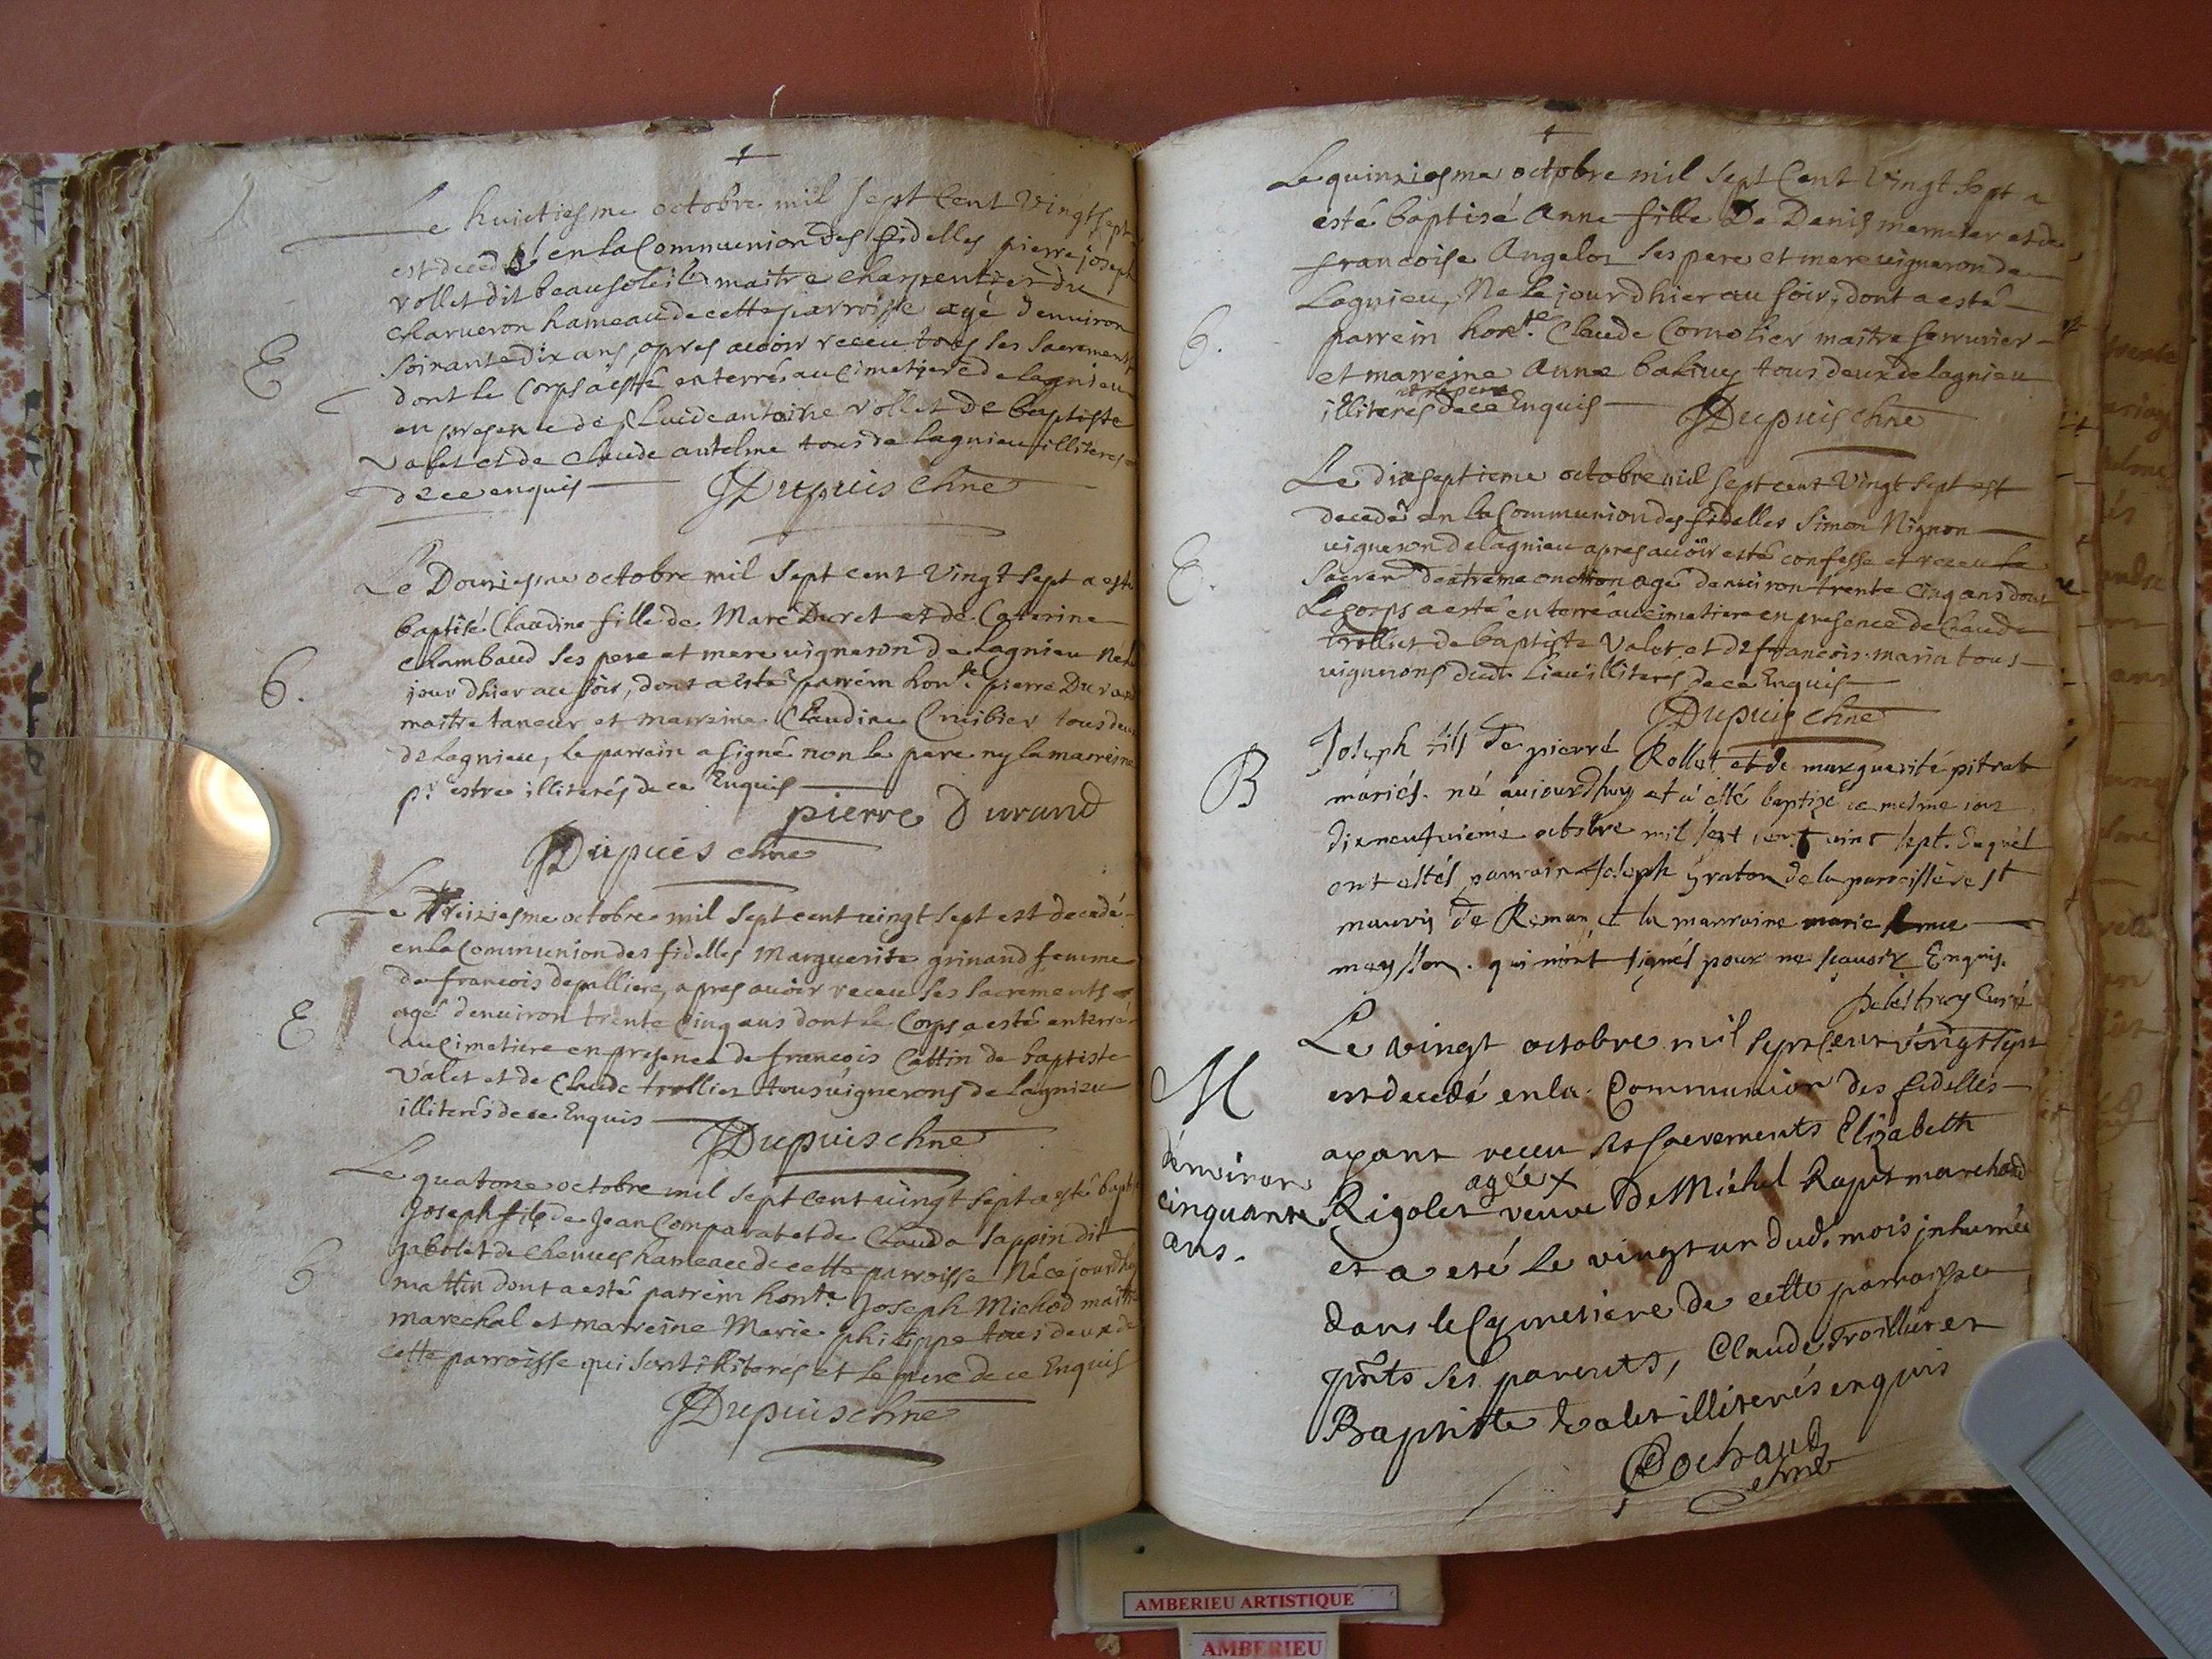 Le huictiesme octobre mil sept Cent vingt sept
est decedé en la Communion des fidelles pierre joseph
vollet dit beausoleil maitre charpentier du
charueron hameau de cette parroisse agé denuiron
E
soixante dix ans apres auoir receu tous ses sacrements
dont le Corps a esté enterré au Cimetiere de lagnieu
en presence de antoine vollet de baptiste
valet et de Claude antelme tous de lagnieu illiteres
de ce enquis JDupuis chne
Le Douziesme octobre mil sept cent Vingt sept a esté
baptisé Claudine fille de Marc Ducret et de Caterine
Chambaud ses pere et mere uigneron de Lagnieu Né le
6.
jour dhier au soir, dont a esté parrein honte. pierre Durand
maitre taneur et marreine Claudine Cruibier tous deux
de Lagnieu, le parrein a signé non le pere ny la marreine
pr estre illiterés de ce Enquis
pierre Durand
JDupuis chne
Le treiziesme octobre mil sept cent uingt sept est decedé
en la Communion des fidelles Marguerite grinand femme
de francois depalliere, apres auoir receu ses sacrements
agé denuiron trente Cinq ans dont le Corps a esté enterré
E
au Cimetiere en presence de francois Cattin de baptiste
Valet et de Claude trollier tous uignerons de Lagnieu
illiterés de ce Enquis
JDupuis chne
Le quatorze octobre mil sept Cent uingt sept a esté baptisé
Joseph fils de Jean Comparat et de Clauda sappin dit
gabolet de Chenues hameau de cette parroisse Né ce jourdhuy
6
mattin dont a esté parrein honte. Joseph Michod maitre
marechal et marreine Marie philippe tous deux de
cette parroisse qui sont illiterés et le pere de ce Enquis
JDupuis chne
Le quinziesme octobre mil sept Cent Vingt sept a
esté baptisé Anne fille De Denis mermetar et de
francoise Angelot ses pere et mere uigneron de
Lagnieu, Né le jour dhier au soir, dont a esté
6.
parrein honte. Claude Cornolier maitre serrurier
et marreine Anne baliuy tous deux de lagnieu
et le pere
illiterés de ce Enquis JDupuis chne
Le dixseptieme octobre mil sept cent Vingt sept est
decedé en la Communion des fidelles Simon Nignon
E.
uigneron de lagnieu apres auoir esté confesse et receu le
Sacrem dextreme onction agé denuiron trente Cinq ans dont
Le corps a esté enterré au cimetiere en presence de Claude
trolliet de baptiste Valet et de francois marin tous
uignerons dudt. Lieu illiterés de ce Enquis
JDupuis chne
B
Joseph fils De pierre Rollet et de marguerite pitrat
mariés. né aujourdhuy et à esté baptizé ce mesme iour
dixneufuieme octobre mil sept cent uint sept. duquel
ont estés parrain Joseph graton de la parroisse de st
mauris De Reman, et la marraine marie
maysson. qui n'ont signés pour ne scauoir Enquis.
Curé
Le vingt octobre mil sept Cent vingt sept
M
est decedé en la Communion des fidelles
ayant receu ses sacrements Elizabeth
agée x
d'enviroon
cinquante
ans.
Rigolet veuve de Michel Raput marchand
et a esté Le vingt un dud. mois inhumée
dans le Cymetiere de cette parroisse
pnts ses parents, Claude Troillier et
Baptiste Valet illiterés enquis
Cochaud
chne
AMBERIEU ARTISTIQUE
AMBERIEU